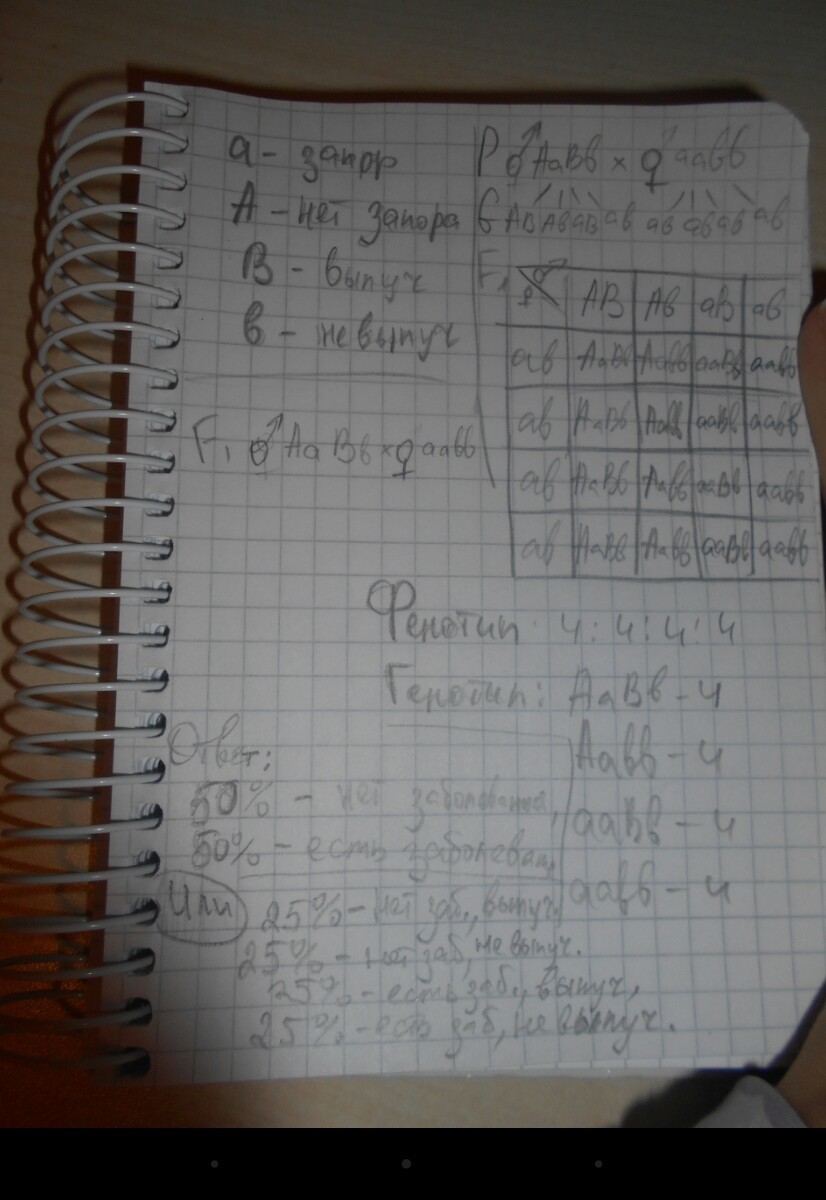 а - запор
А - нет запора
В - выпуч
в - невыпуч
F₁ ♂ АаВв × ♀ аавв
Р ♂ АаВв × ♀ аавв
G АВ Ав аВ ав ав ав ав ав
F₁ ♀ ♂ АВ Ав аВ ав
ав АаВв Аавв ааВв аавв
ав АаВв Аавв ааВв аавв
ав АаВв Аавв ааВв аавв
ав АаВв Аавв ааВв аавв
Фенотип 4:4:4:4
Генотип: АаВв - 4
Аавв - 4
ааВв - 4
аавв - 4
Ответ:
50% - нет заболевания,
50% - есть заболеван,
Или
25% - нет заб., выпуч,
25% - нет заб, не выпуч.
25% - есть заб., выпуч,
25% - есть заб, не выпуч.